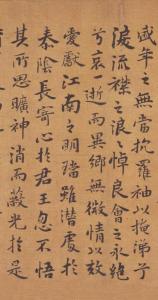 盛年之無當抗羅袖以掩涕兮
淚流襟之浪浪悼良會之永絕
兮哀一逝而異鄉無微情以效
愛獻江南之明璫雖潛處於
泰陰長寄心於君王忽不悟
其所思曠神消而蔽光於是